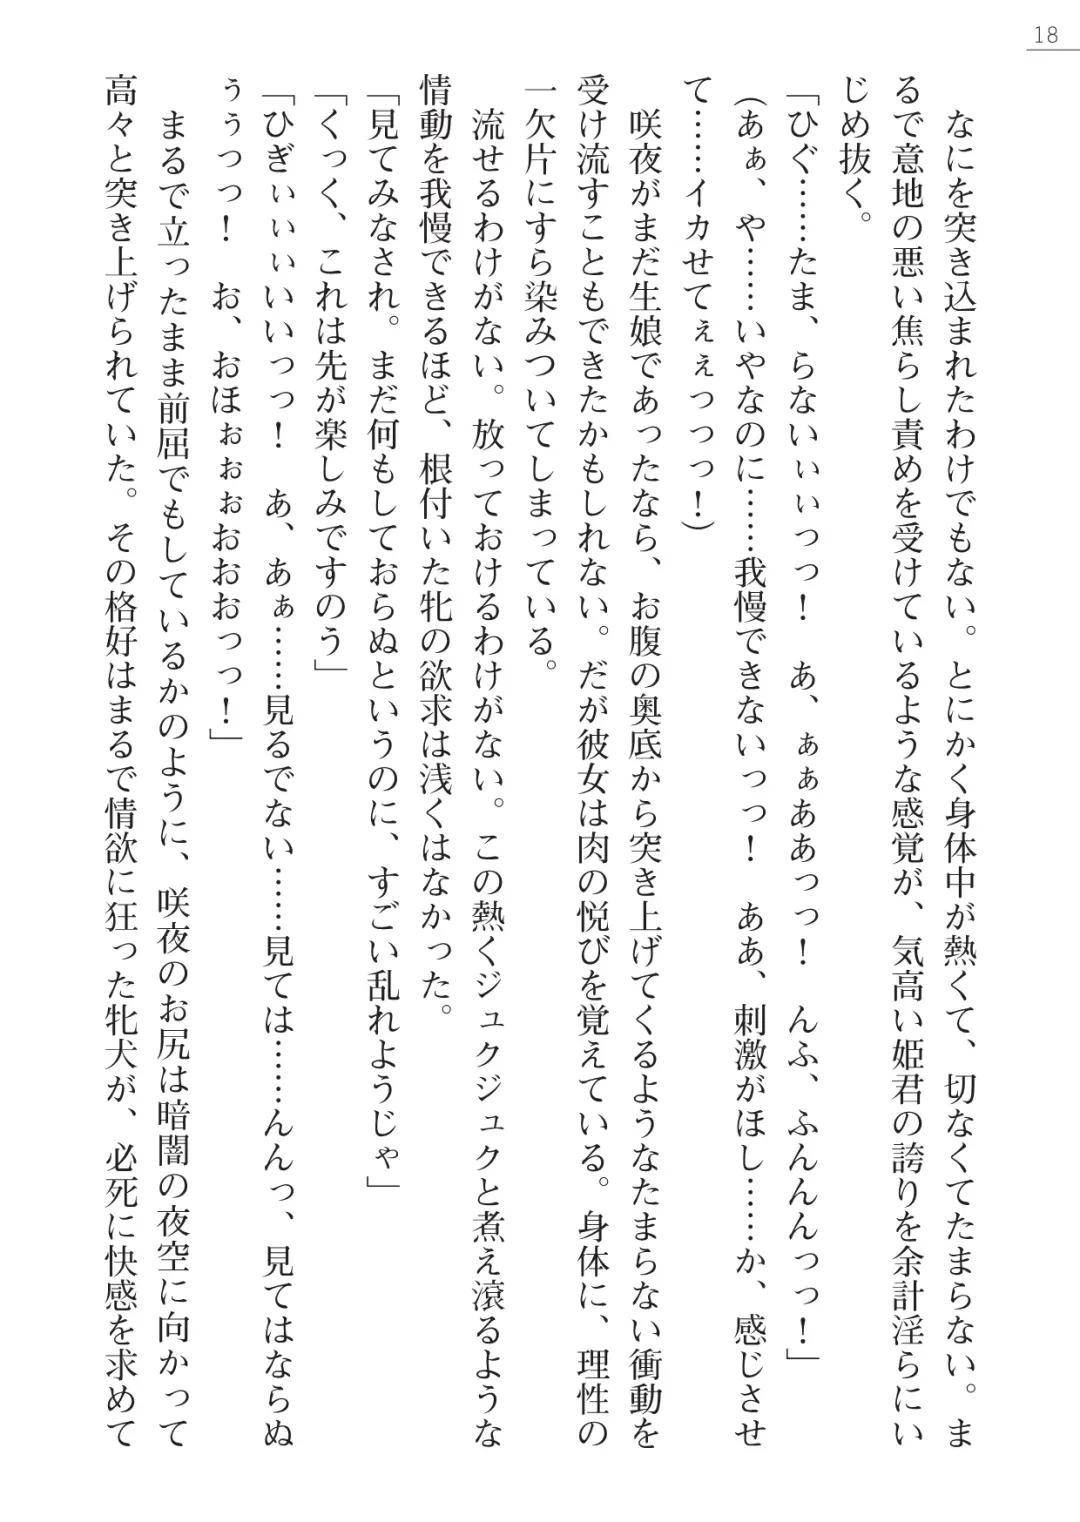 18
なにを突き込まれたわけでもない。とにかく身体中が熱くて、切なくてたまらない。ま
るで意地の悪い焦らし責めを受けているような感覚が、気高い姫君の誇りを余計淫らにい
じめ抜く。
「ひぐ……たま、らないぃぃっっ！　あ、ぁぁああっっ！　んふ、ふんんんっっ！」
（あぁ、や……いやなのに……我慢できないっっ！　ああ、刺激がほし……か、感じさせ
て……イカせてぇぇっっっ！）
咲夜がまだ生娘であったなら、お腹の奥底から突き上げてくるようなたまらない衝動を
受け流すこともできたかもしれない。だが彼女は肉の悦びを覚えている。身体に、理性の
一欠片にすら染みついてしまっている。
流せるわけがない。放っておけるわけがない。この熱くジュクジュクと煮え滾るような
情動を我慢できるほど、根付いた牝の欲求は浅くはなかった。
「見てみなされ。まだ何もしておらぬというのに、すごい乱れようじゃ」
「くっく、これは先が楽しみですのう」
「ひぎぃぃぃいいっっ！　あ、あぁ……見るでない……見ては……んんっ、見てはならぬ
ぅぅっっ！　お、おほぉぉぉおおおっっ！」
まるで立ったまま前屈でもしているかのように、咲夜のお尻は暗闇の夜空に向かって
高々と突き上げられていた。その格好はまるで情欲に狂った牝犬が、必死に快感を求めて